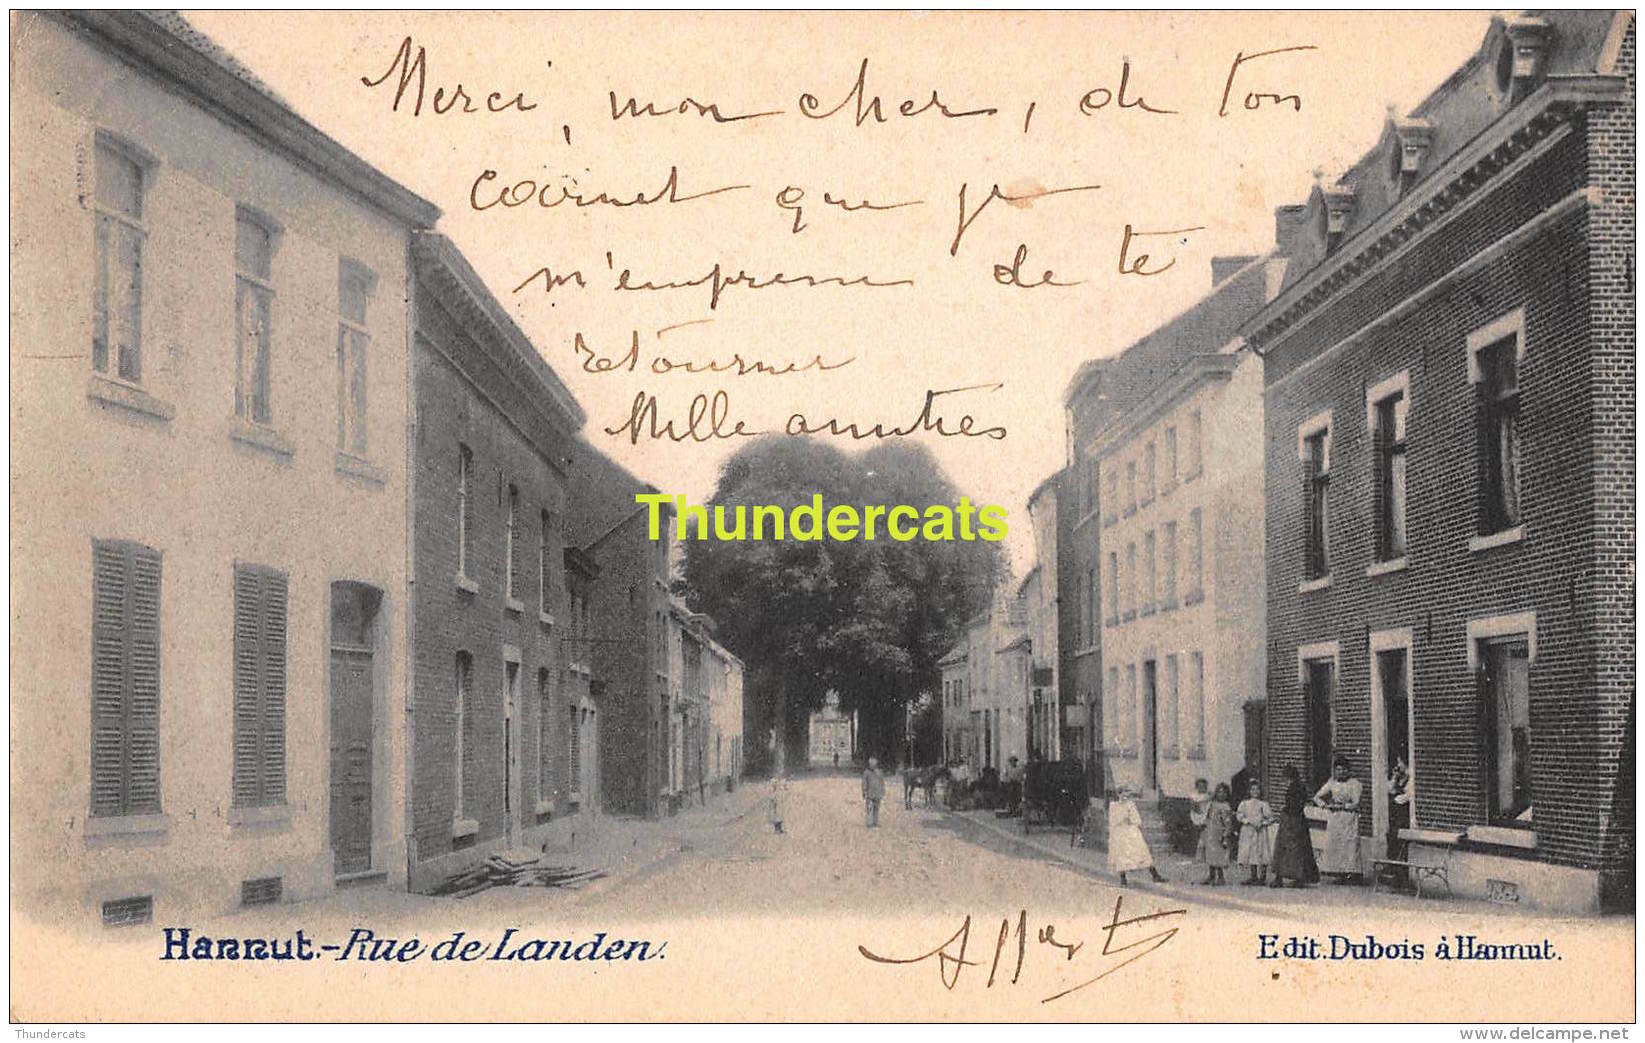 Merci, mon cher, de ton
cornet que je
m'empresse de te
retourner
Mille amitiés
Thundercats
Hannut.-Rue de Landen.
Edit. Dubois à Hannut.
Thundercats
www.delcampe.net